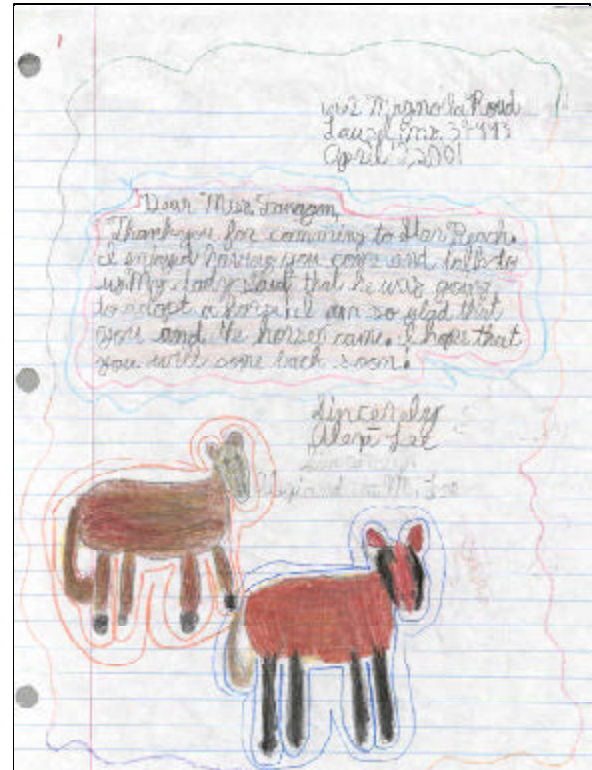 Magnolia Road
Laurel, MS. 39443
April 2, 2001
Dear Miss
Thank you for comming to Star Reach.
I enjoyed having you come and talk to
us. My dady said that he was going
to adopt a horse. I am so glad that
you and the horses came. I hope that
you will come back soon!
Sincerely
Alex Lee
Sincerely